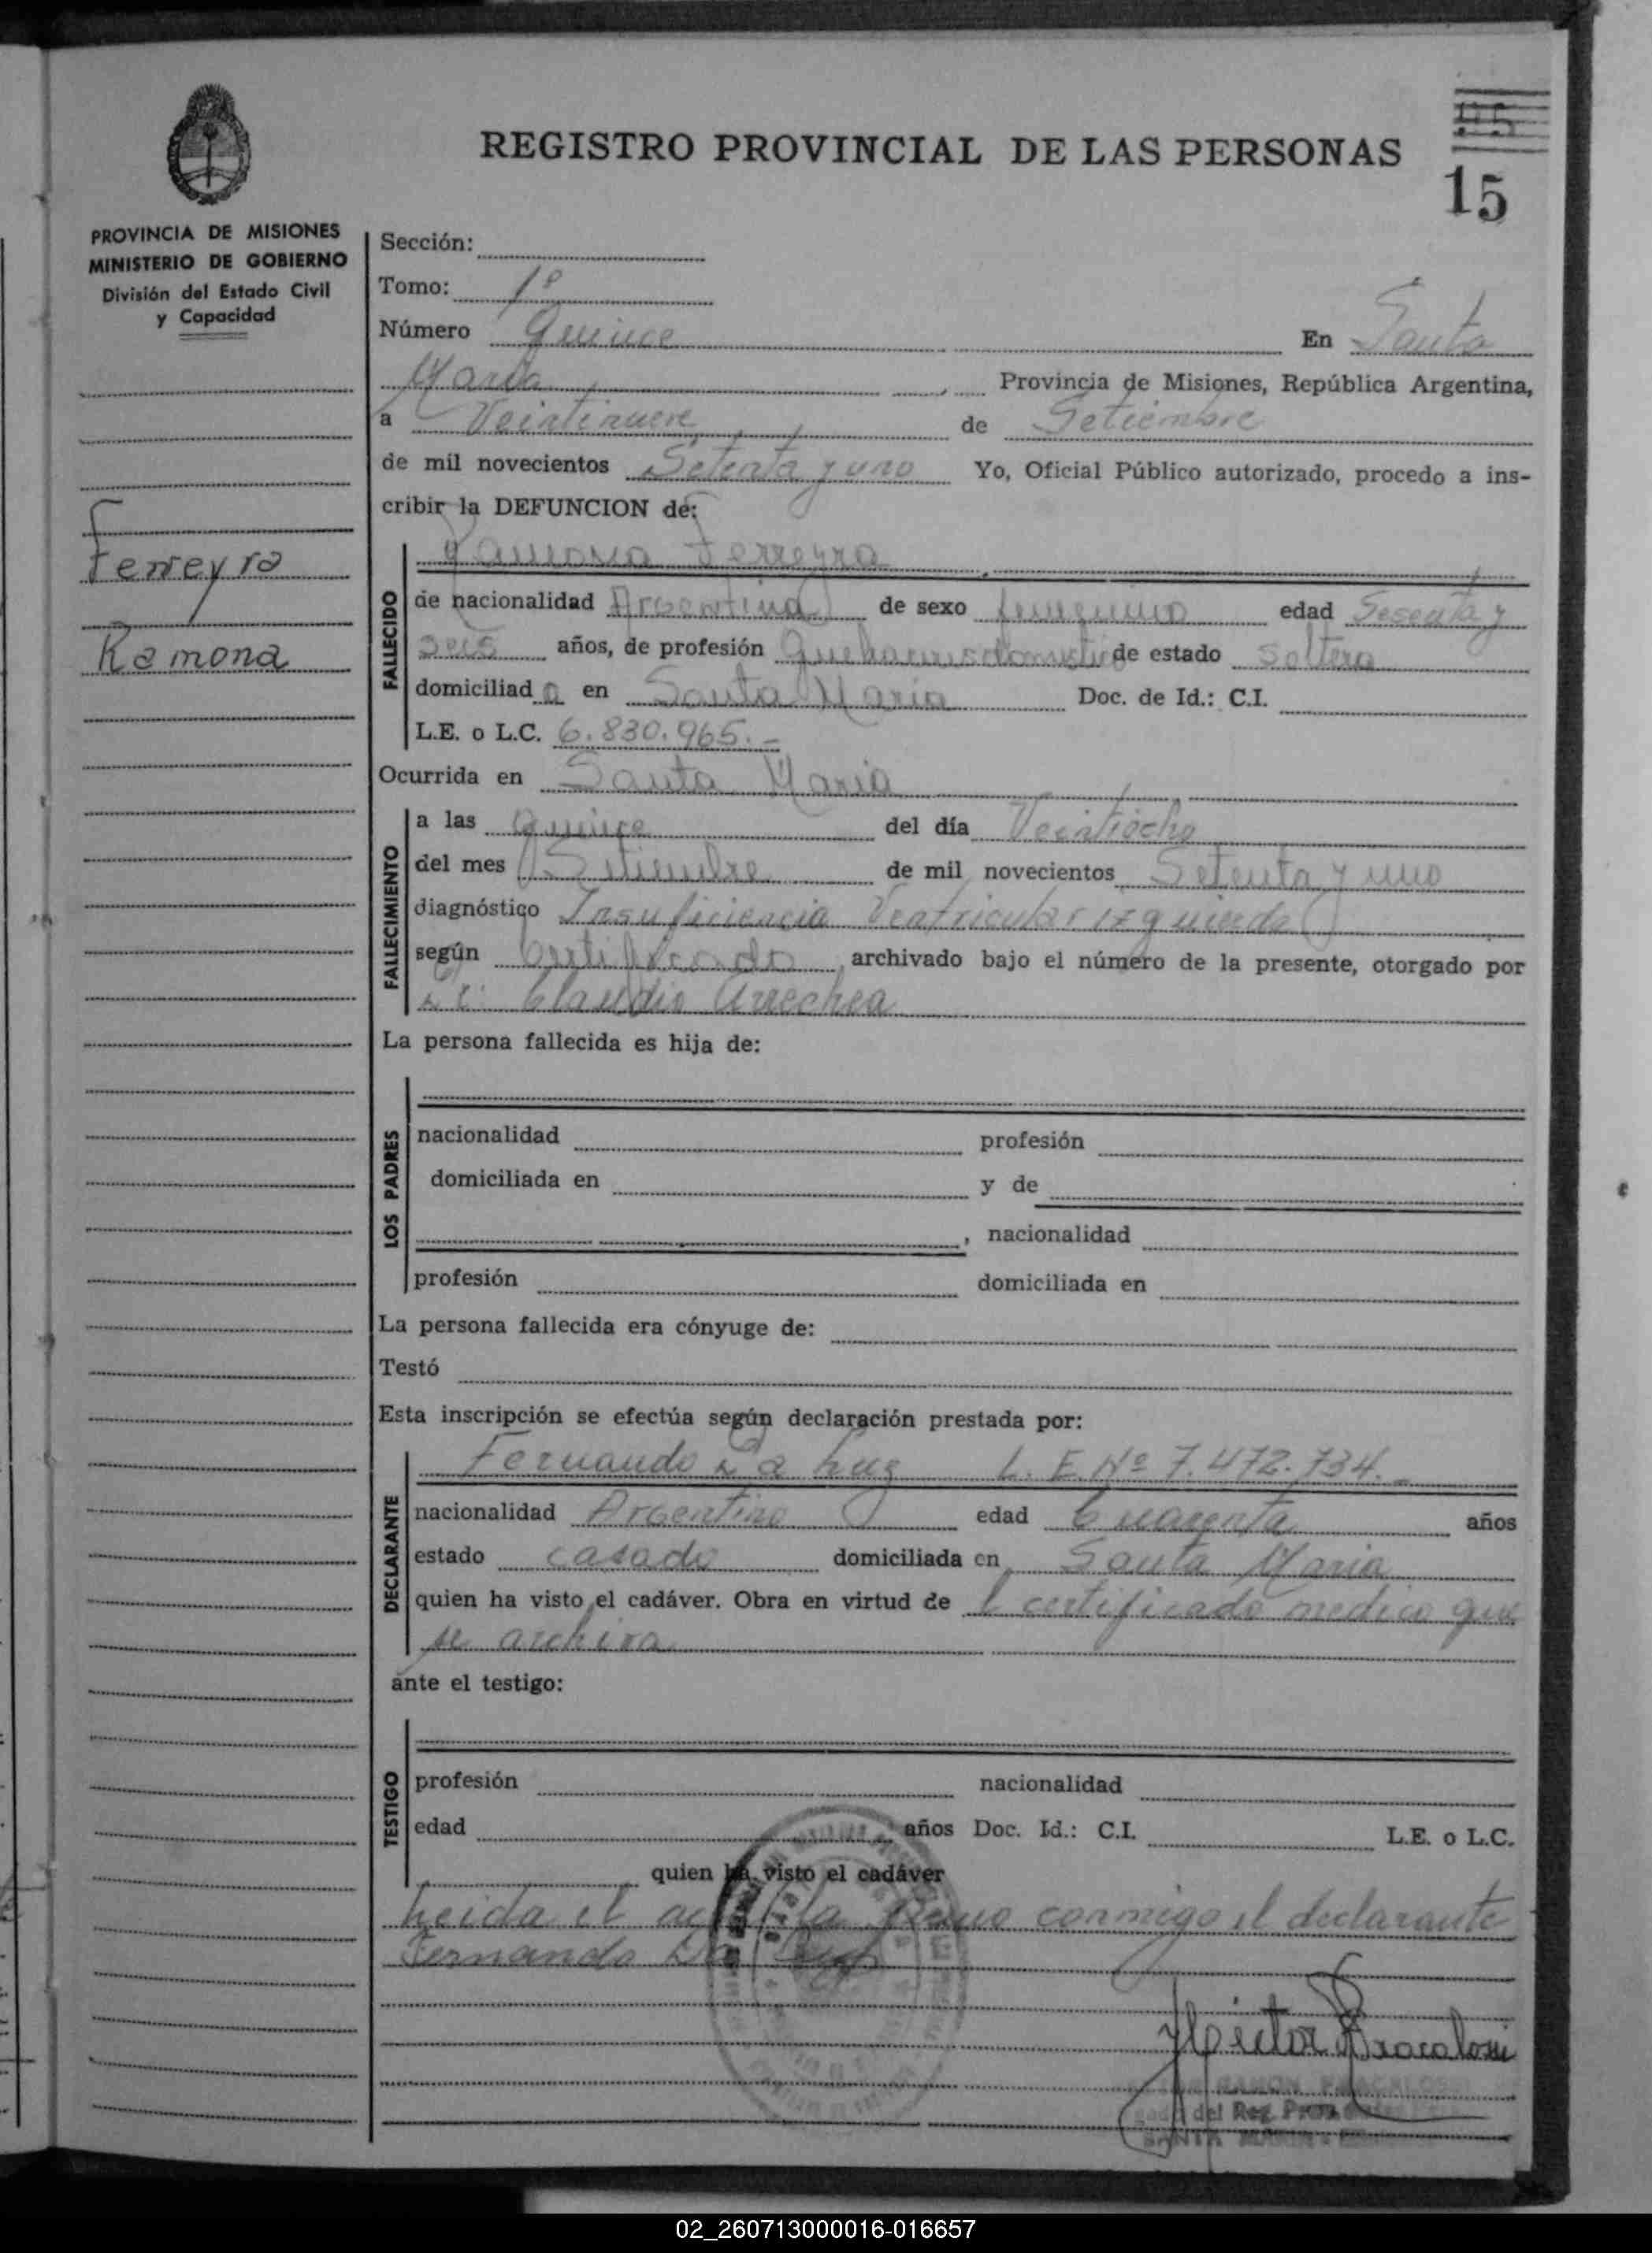 REGISTRO PROVINCIAL DE LAS PERSONAS
15
PROVINCIA DE MISIONES
MINISTERIO DE GOBIERNO
División del Estado Civil
y Capacidad
Ferreyra
Ramona
Sección:
Tomo: 1º
Número Quince En Santa
Maria Provincia de Misiones, República Argentina,
a Veintinueve de Setiembre
de mil novecientos Setenta y uno Yo, Oficial Público autorizado, procedo a ins-
cribir la DEFUNCION de:
FALLECIDO
Ramona Ferreyra
de nacionalidad Argentina de sexo femenino edad Sesenta y
seis años, de profesión Quehaceres domesticos de estado Soltera
domiciliad a en Santa Maria Doc. de Id.: C.I.
L.E. o L.C. 6.830.965.-
Ocurrida en Santa Maria
FALLECIMIENTO
a las Quince del día Veintiocho
del mes Setiembre de mil novecientos Setenta y uno
diagnóstico Insuficiencia Ventricular izquierda
según Certificado archivado bajo el número de la presente, otorgado por
Dr. Claudio Arrechea
La persona fallecida es hija de:
LOS PADRES
nacionalidad profesión
domiciliada en y de
, nacionalidad
profesión domiciliada en
La persona fallecida era cónyuge de:
Testó
Esta inscripción se efectúa según declaración prestada por:
DECLARANTE
Fernando Da Luz L. E. Nº 7.472.734.-
nacionalidad Argentino edad Cuarenta años
estado casado domiciliada en Santa Maria
quien ha visto el cadáver. Obra en virtud de l certificado medico que
se archiva
ante el testigo:
TESTIGO
profesión nacionalidad
edad años Doc. Id.: C.I. L.E. o L.C.
quien ha visto el cadáver
Leida el acta la firmo conmigo el declarante
Fernando Da Luz
Hector
del Reg. Prov.
SANTA MARIA
02_260713000016-016657